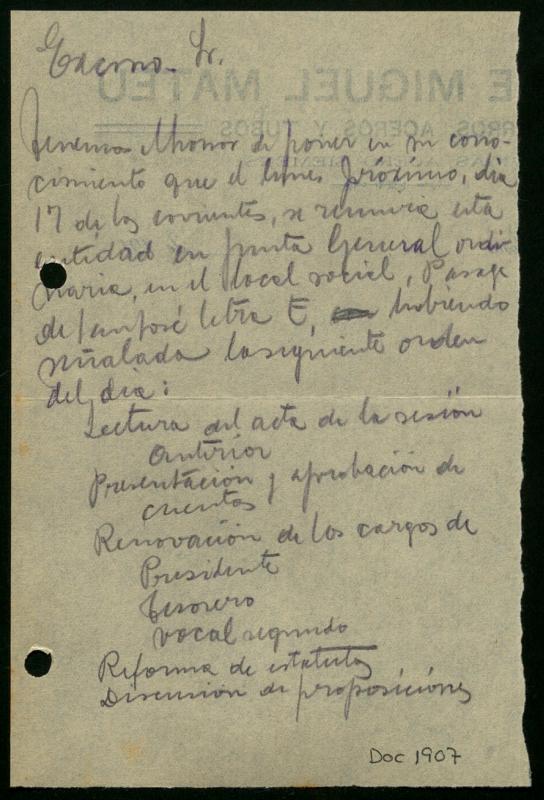 Excmo. Sr.
Tenemos el honor de poner en su cono-
cimiento que el lunes próximo, día
17 de los corrientes, se reunira esta
entidad en Junta General ordi
naria, en el local social, Pasaje
de San José letra E, habiendo
señalado la siguiente orden
del dia:
Lectura del acta de la sesión
anterior
Presentación y aprobación de
cuentas
Renovación de los cargos de
Presidente
Tesorero
Vocal segundo
Reforma de estatutos
Discusión de proposiciónes
Doc 1907
E MIGUEL MATEU
RROS, ACEROS Y TUBOS